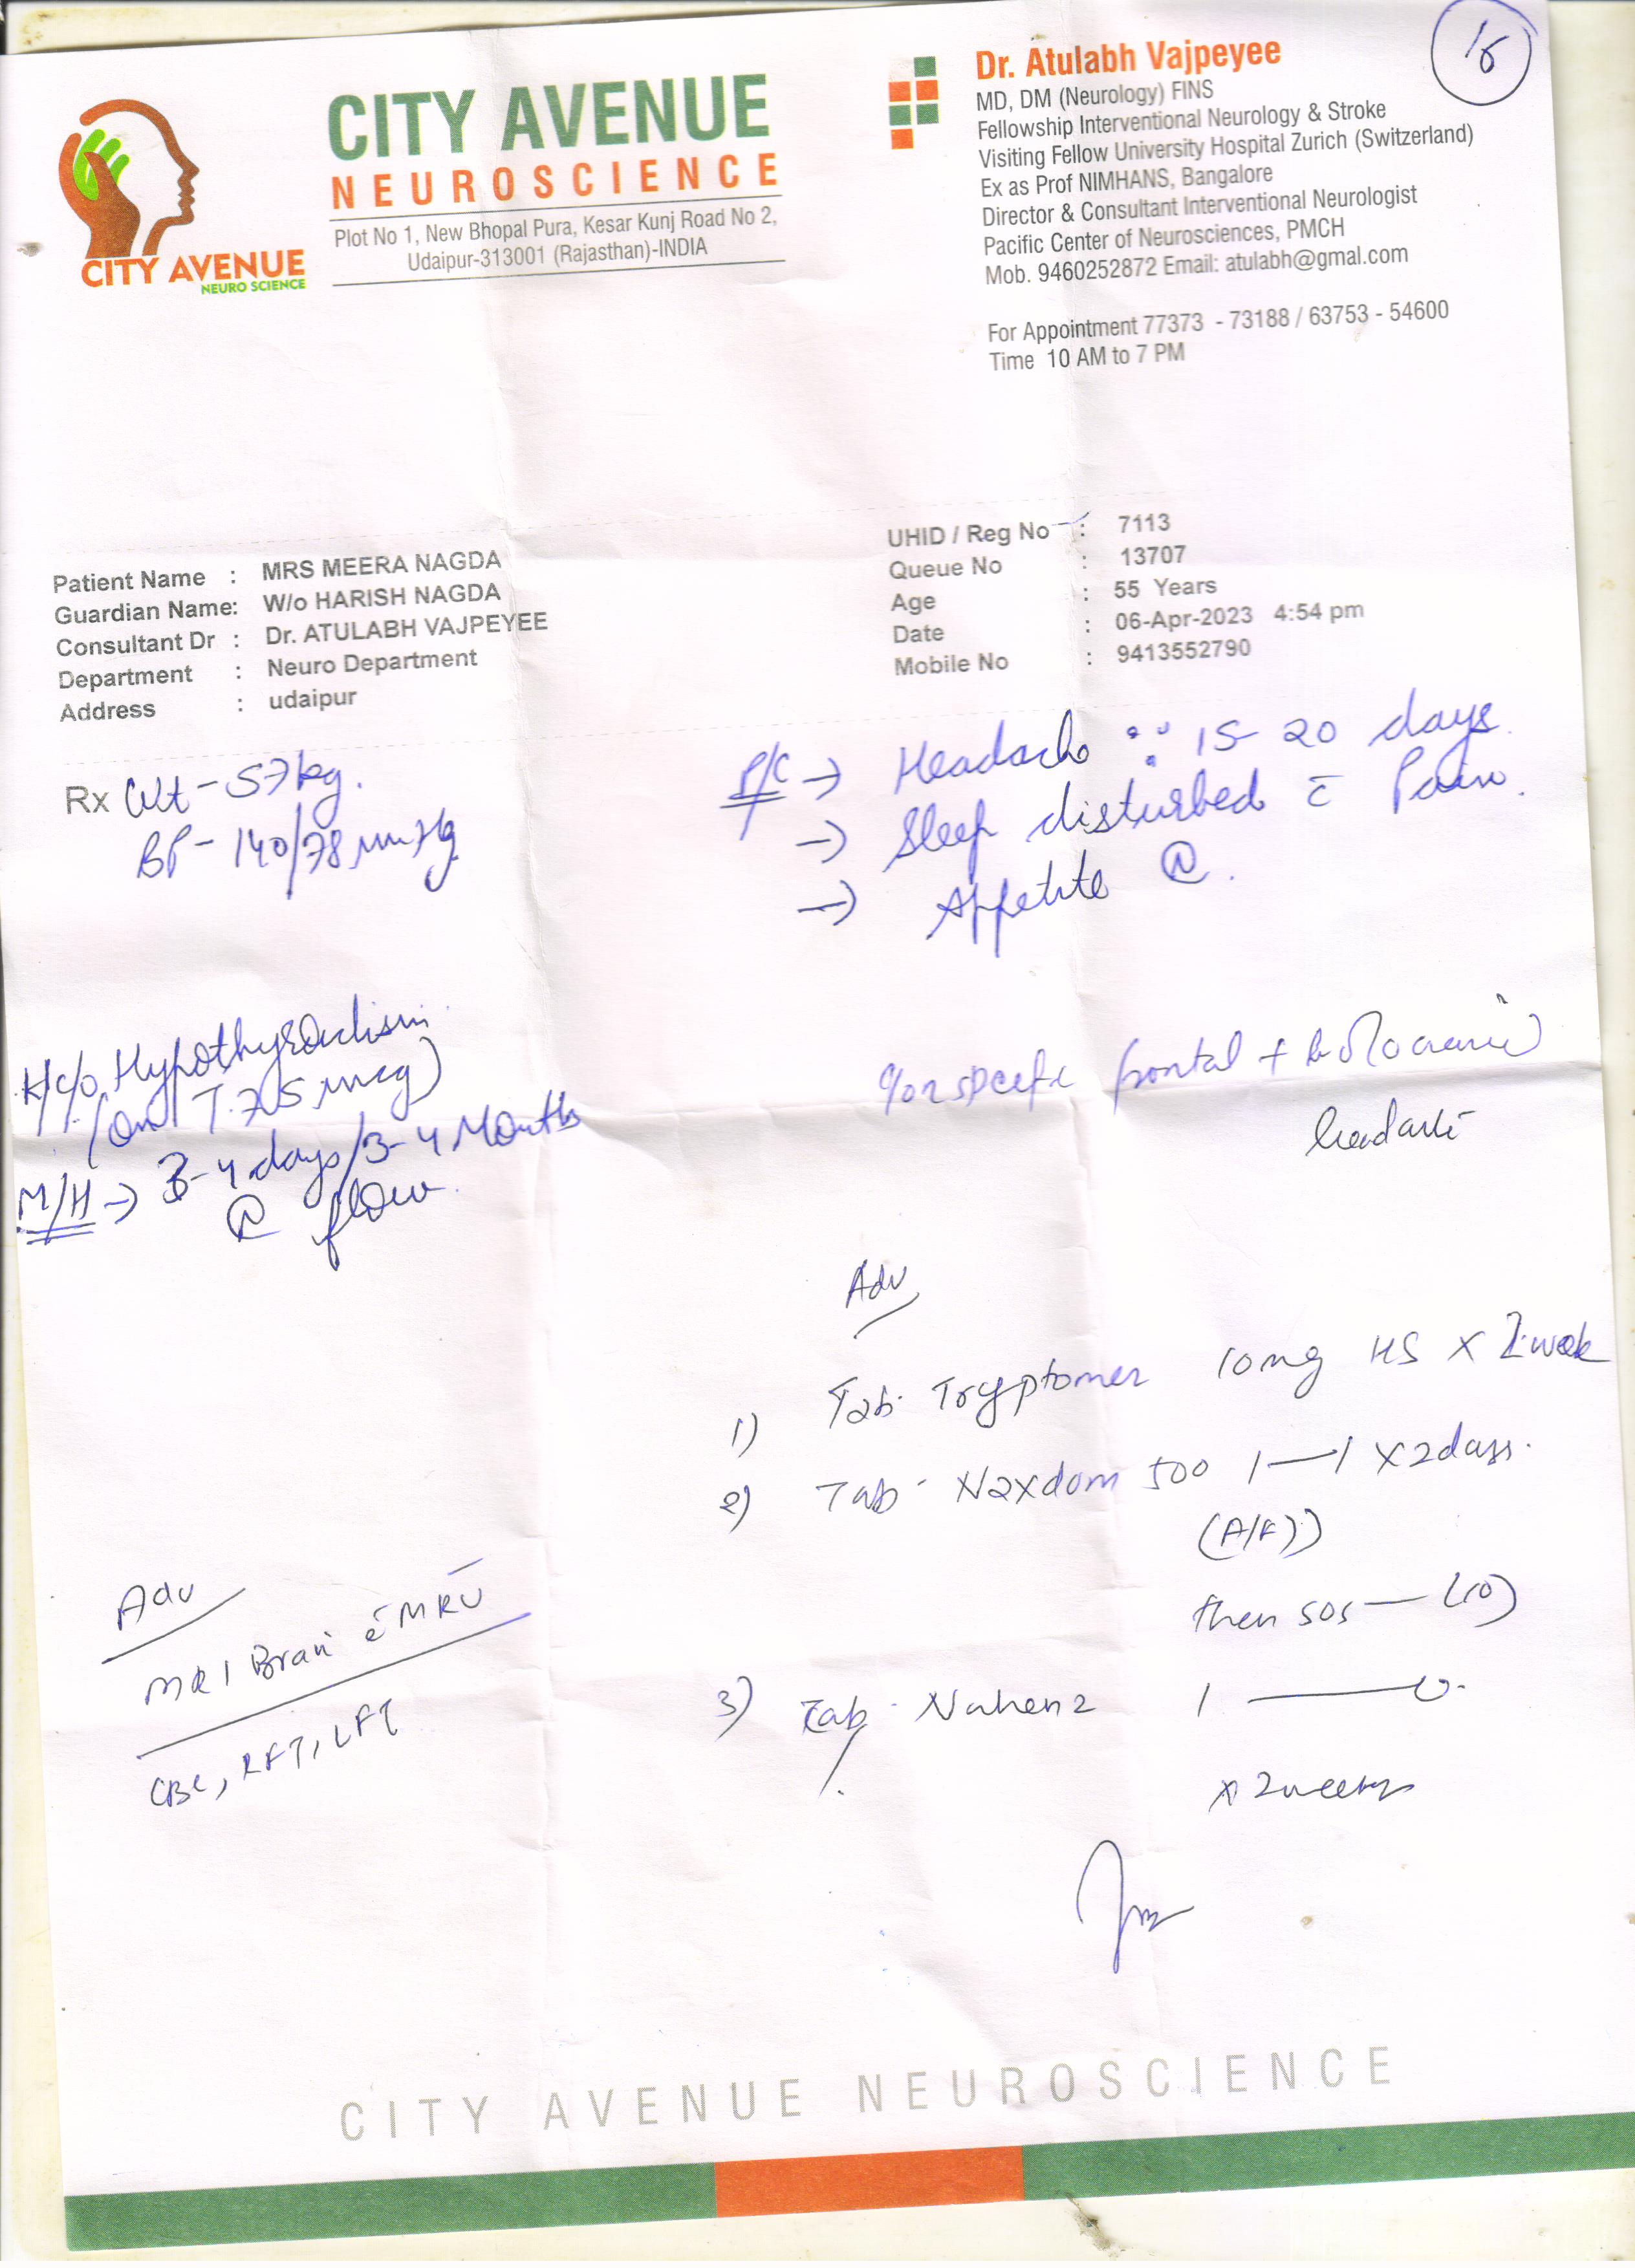 16
CITY AVENUE
NEUROSCIENCE
Plot No 1, New Bhopal Pura, Kesar Kunj Road No 2,
Udaipur-313001 (Rajasthan)-INDIA
CITY AVENUE
NEURO SCIENCE
Dr. Atulabh Vajpeyee
MD, DM (Neurology) FINS
Fellowship Interventional Neurology & Stroke
Visiting Fellow University Hospital Zurich (Switzerland)
Ex as Prof NIMHANS, Bangalore
Director & Consultant Interventional Neurologist
Pacific Center of Neurosciences, PMCH
Mob. 9460252872 Email: atulabh@gmal.com
For Appointment 77373 - 73188 / 63753 - 54600
Time 10 AM to 7 PM
Patient Name : MRS MEERA NAGDA
Guardian Name: W/o HARISH NAGDA
Consultant Dr : Dr. ATULABH VAJPEYEE
Department : Neuro Department
Address : udaipur
UHID / Reg No : 7113
Queue No : 13707
Age : 55 Years
Date : 06-Apr-2023 4:54 pm
Mobile No : 9413552790
Rx Wt - 57kg.
BP - 140/78 mmHg
P/C → Headache 15-20 days
→ Sleep disturbed c̄ Pain.
→ Appetite (N).
K/c/o Hypothyroidism
(on T. 75 mcg)
M/H → 3-4 days/3-4 Months
(N) flow.
frontal + holocranic
headache
Adv
1) Tab. Tryptomer 10mg HS X 2 week
2) Tab. Naxdom 500 1—1 X 2days.
(A/F)
then SOS — (10)
3) Tab. 1 —
x 2weeks
Adv
MRI Brain c̄ MRV
CBC, RFT, LFT
CITY AVENUE NEUROSCIENCE